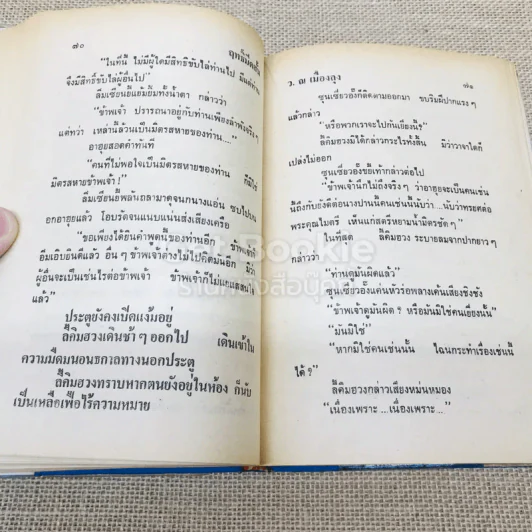 ๗๐
ฤทธิ์มีดสั้น
"ในที่นี้ ไม่มีผู้ใดมีสิทธิ์ขับไล่ท่านไป มีแต่ท่าน
จึงมีสิทธิ์ขับไล่ผู้อื่นไป"
ลิ้มเซียนยี้แย้มยิ้มทั้งน้ำตา กล่าวว่า
"ข้าพเจ้า ปรารถนาอยู่กับท่านเพียงลำพังจริงๆ
แต่ทว่า เหล่านี้ล้วนเป็นมิตรสหายของท่าน"
อาฮุยสอดคำทันที
"คนที่ไม่พอใจเป็นมิตรสหายของท่าน ก็มิใช่
มิตรสหายข้าพเจ้า!"
ลิ้มเซียนยี้พลันถลามาดุจนกนางแอ่น ซบไปบน
อกอาฮุยแล้ว โอบรัดจนแนบแน่นส่งเสียงเครือ
"ขอเพียงได้ยินคำพูดนี้ของท่าน ข้าพเจ้าก็
อิ่มเอิบยินดีแล้ว อื่นๆ ข้าพเจ้าล้วนไม่ไปคิดมันอีก มิว่า
ผู้อื่นจะเป็นเช่นไรต่อข้าพเจ้า ข้าพเจ้าก็ไม่แยแสสนใจ
แล้ว"
ประตูยังคงเปิดแง้มอยู่
ลี้คิมฮวงเดินช้าๆ ออกไป เดินเข้าใน
ความมืดมนอนธกาลทางนอกประตู
ลี้คิมฮวงทราบหากตนยังอยู่ในห้อง ก็นับ
เป็นเหลือเฟือไร้ความหมาย
ว. ณ เมืองลุง
๗๑
ซุนเซี่ยวอั้งก็ติดตามออกมา ขบริมฝีปากแรงๆ
แล้วกล่าว
"หรือพวกเราจะไปกันเยี่ยงนี้?"
ลี้คิมฮวงมิได้กล่าวกระไรทั้งสิ้น มิว่าวาจาใดก็
เปล่งไม่ออก
ซุนเซี่ยวอั้งขยี้เท้ากล่าวต่อไป
"ข้าพเจ้านึกไม่ถึงจริงๆ ว่าอาฮุยจะเป็นคนเช่น
นี้ถึงกับยังติดต่อนางปานนี้คนเช่นนี้นับว่า ...นับว่าทรยศต่อ
พระคุณไมตรี เห็นแก่สตรีหยามน้ำมิตรชัดๆ"
ในที่สุด ลี้คิมฮวง ระบายลมจากปากยาวๆ
กล่าวว่า
"ท่านดูมันผิดแล้ว"
ซุนเซี่ยวอั้งแค่นเสียงชิงชัง
"ข้าพเจ้าดูมันผิด? หรือมันมิใช่คนเยี่ยงนั้น"
"มันมิใช่"
"หากมิใช่คนเช่นนั้น ไฉนกระทำเรื่องเช่นนี้
ได้?"
ลี้คิมฮวงกล่าวเสียงหม่นหมอง
"เนื่องเพราะ ...เนื่องเพราะ..."
Bookie